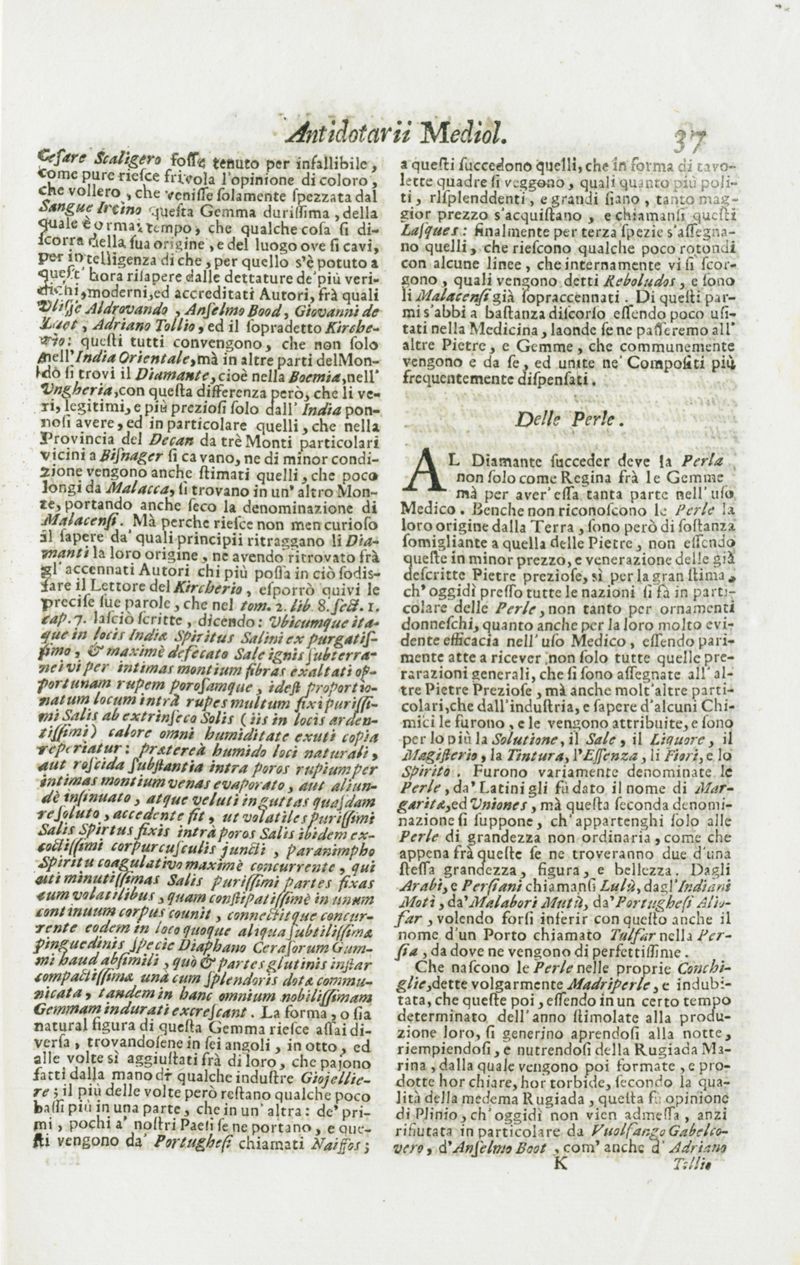 Antidotarii Mediol. 37
Cesare Scaligero fosse tenuto per infallibile,
come pure riesce frivola l'opinione di coloro,
che vollero, che venisse solamente spezzata dal
Sangue Ircino questa Gemma durissima, della
quale è ormai tempo, che qualche cosa si di-
scorra della sua origine, e del luogo ove si cavi,
per intelligenza di che, per quello s'è potuto a
quest' hora risapere dalle dettature de' più veri-
dichi, moderni, ed accreditati Autori, frà quali
Vlisse Aldrovando, Anselmo Bood, Giovanni de
Laet, Adriano Tollio, ed il sopradetto Kirche-
rio: questi tutti convengono, che non solo
nell' India Orientale, mà in altre parti del Mon-
do si trovi il Diamante, cioè nella Boemia, nell'
Vngheria, con questa differenza però, che li ve-
ri, legitimi, e più preziosi solo dall' India pon-
nosi avere, ed in particolare quelli, che nella
Provincia del Decan da trè Monti particolari
vicini a Bisnager si cavano, ne di minor condi-
zione vengono anche stimati quelli, che poco
longi da Malacca, si trovano in un' altro Mon-
te, portando anche seco la denominazione di
Malacensi. Mà perche riesce non men curioso
il sapere da' quali principii ritraggano li Dia-
manti la loro origine, ne avendo ritrovato frà
gl' accennati Autori chi più possa in ciò sodis-
fare il Lettore del Kircherio, esporrò quivi le
precise sue parole, che nel tom. 2. lib 8. sect. 1.
cap. 7. lasciò scritte, dicendo: Vbicumque ita-
que in locis Indiæ Spiritus Salini ex purgatis-
simo, & maximè defecato Sale ignis subterra-
nei vi per intimas montium fibras exaltati op-
portunam rupem porosamque, idest proportio-
natum locum intrà rupes multum fixi purissi-
mi Salis ab extrinseco Solis (iis in locis arden-
tissimi) calore omni humiditate exuti copia
reperiatur: prætereà humido loci naturali,
aut roscida substantia intra poros rupium per
intimas montium venas evaporato, aut aliun-
dè insinuato, atque veluti in guttas quasdam
resoluto, accedente fit, ut volatiles purissimi
Salis Spirtus fixis intrà poros Salis ibidem ex-
coctissimi corpurcusculis juncti, paranimpho
Spiritu coagulativo maximè concurrente, qui
uti minutissimas Salis purissimi partes fixas
cum volatilibus, quam constipatissimè in unum
continuum corpus counit, connectitque concur-
rente eodem in loco quoque aliqua subtilissima
pinguedinis specie Diaphano Cerasorum Gum-
mi haud absimili, quò & partes glutinis instar
compactissima una cum splendoris dota commu-
nicata, tandem in hanc omnium nobilissimam
Gemmam indurati excrescant. La forma, o sia
natural figura di questa Gemma riesce assai di-
versa, trovandosene in sei angoli, in otto, ed
alle volte sì aggiustati frà di loro, che pajono
fatti dalla mano di qualche industre Gioiellie-
re; il più delle volte però restano qualche poco
bassi più in una parte, che in un' altra: de' pri-
mi, pochi a' nostri Paesi se ne portano, e que-
sti vengono da' Portughesi chiamati Naiffos;
a questi succedono quelli, che in forma di tavo-
lette quadre si veggono, quali quanto più poli-
ti, risplenddenti, e grandi siano, tanto mag-
gior prezzo s'acquistano, e chiamansi questi
Lasques: finalmente per terza spezie s'assegna-
no quelli, che riescono qualche poco rotondi
con alcune linee, che internamente vi si scor-
gono, quali vengono detti Reboludos, e sono
li Malacensi già sopraccennati. Di questi par-
mi s'abbi a bastanza discorso essendo poco usi-
tati nella Medicina, laonde se ne passeremo all'
altre Pietre, e Gemme, che communemente
vengono e da se, ed unite ne' Compositi più
frequentemente dispensati.
Delle Perle.
AL Diamante succeder deve la Perla
non solo come Regina frà le Gemme
mà per aver' essa tanta parte nell' uso
Medico. Benche non riconoscono le Perle la
loro origine dalla Terra, sono però di sostanza
somigliante a quella delle Pietre, non essendo
queste in minor prezzo, e venerazione delle già
descritte Pietre preziose, sì per la gran stima,
ch' oggidì presso tutte le nazioni si fà in parti-
colare delle Perle, non tanto per ornamenti
donneschi, quanto anche per la loro molto evi-
dente efficacia nell' uso Medico, essendo pari-
mente atte a ricever non solo tutte quelle pre-
rarazioni generali, che si sono assegnate all' al-
tre Pietre Preziose, mà anche molt' altre parti-
colari, che dall' industria, e sapere d'alcuni Chi-
mici le furono, e le vengono attribuite, e sono
per lo più la Solutione, il Sale, il Liquore, il
Magisterio, la Tintura, l'Essenza, li Fiori, e lo
Spirito. Furono variamente denominate le
Perle, da' Latini gli fù dato il nome di Mar-
garita, ed Vniones, mà questa seconda denomi-
nazione si suppone, ch' appartenghi solo alle
Perle di grandezza non ordinaria, come che
appena frà queste se ne troveranno due d'una
stessa grandezza, figura, e bellezza. Dagli
Arabi, e Persiani chiamansi Lulù, dagl' Indiani
Moti, da' Malabori Mutù, da' Portughesi Alio-
far, volendo forsi inferir con questo anche il
nome d'un Porto chiamato Tulfar nella Per-
sia, da dove ne vengono di perfettissime.
Che nascono le Perle nelle proprie Conchi-
glie, dette volgarmente Madriperle, e indubi-
tata, che queste poi, essendo in un certo tempo
determinato dell' anno stimolate alla produ-
zione loro, si generino aprendosi alla notte,
riempiendosi, e nutrendosi della Rugiada Ma-
rina, dalla quale vengono poi formate, e pro-
dotte hor chiare, hor torbide, secondo la qua-
lità della medema Rugiada, questa fù opinione
di Plinio, ch' oggidì non vien admessa, anzi
rifiutata in particolare da Vuolfango Gabelco-
vero, d' Anselmo Boot, com' anche d' Adriano
K Tollio